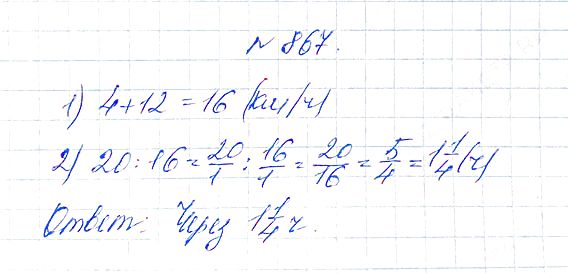 № 867.
1) 4+12 = 16 (км/ч)
2) 20 : 16 = 20/1 : 16/1 = 20/16 = 5/4 = 1 1/4 (ч)
Ответ: Через 1 1/4 ч.